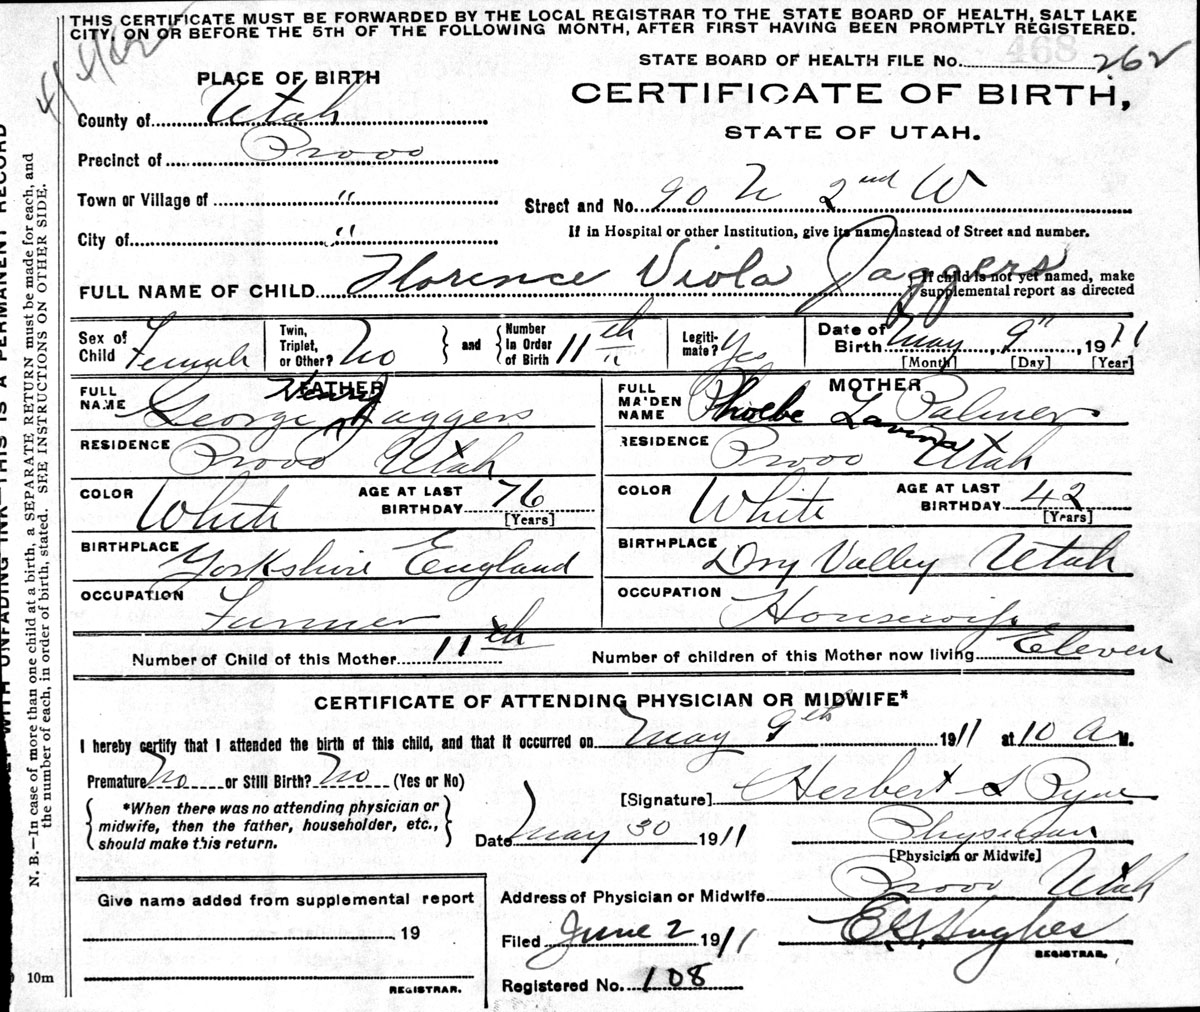 THIS CERTIFICATE MUST BE FORWARDED BY THE LOCAL REGISTRAR TO THE STATE BOARD OF HEALTH, SALT LAKE
CITY, ON OR BEFORE THE 5TH OF THE FOLLOWING MONTH, AFTER FIRST HAVING BEEN PROMPTLY REGISTERED.
468
STATE BOARD OF HEALTH FILE No. 262
PLACE OF BIRTH
CERTIFICATE OF BIRTH,
STATE OF UTAH.
County of Utah
Precinct of Provo
Town or Village of "
Street and No. 90 N 2nd W
City of "
If in Hospital or other Institution, give its name instead of Street and number.
FULL NAME OF CHILD Florence Viola Jaggers
If child is not yet named, make supplemental report as directed
Sex of Child Female
Twin, Triplet, or Other? No
and
Number In Order of Birth 11th
Legitimate? Yes
Date of Birth May 9" 1911
[Month] [Day] [Year]
FATHER
FULL NAME George Jaggers
MOTHER
FULL MAIDEN NAME Phoebe Lavina Palmer
RESIDENCE Provo Utah
RESIDENCE Provo Utah
COLOR White
AGE AT LAST BIRTHDAY 76 [Years]
COLOR White
AGE AT LAST BIRTHDAY 42 [Years]
BIRTHPLACE Yorkshire England
BIRTHPLACE Dry Valley Utah
OCCUPATION Farmer
OCCUPATION Housewife
Number of Child of this Mother 11th
Number of children of this Mother now living Eleven
CERTIFICATE OF ATTENDING PHYSICIAN OR MIDWIFE*
I hereby certify that I attended the birth of this child, and that it occurred on May 9th 1911 at 10 A. M.
Premature No or Still Birth? No (Yes or No)
*When there was no attending physician or
midwife, then the father, householder, etc.,
should make this return.
[Signature] Herbert S Pyne
Date May 30 1911
Physician
[Physician or Midwife]
Address of Physician or Midwife Provo Utah
Give name added from supplemental report
19
REGISTRAR.
Filed June 2 1911
E. G. Hughes
REGISTRAR.
Registered No. 108
10m
WITH UNFADING INK—THIS IS A PERMANENT RECORD
N. B.—In case of more than one child at a birth, a SEPARATE RETURN must be made for each, and
the number of each, in order of birth, stated. SEE INSTRUCTIONS ON OTHER SIDE.